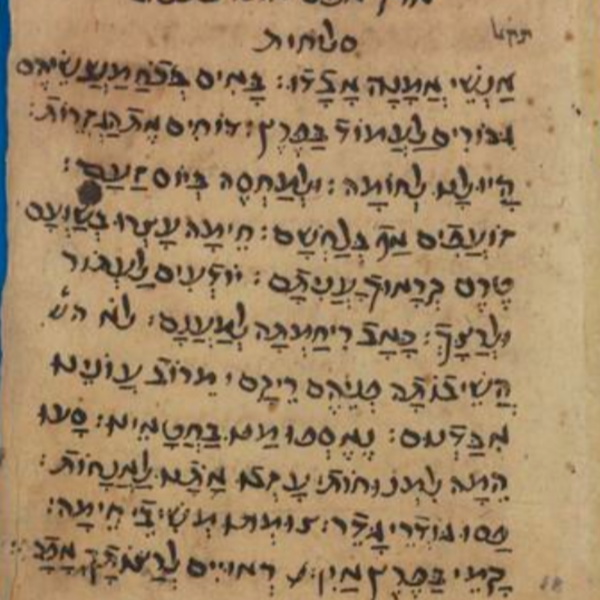 סליחות
אַנְשֵׁי אֲמָנָה אָבָדוּ: בָּאִים בְּכֹחַ מַעֲשֵׂיהֶם
גבורִים לַעֲמוֹד בַּפֶּרֶץ: דוֹחִים אֶת הַגְּזֵרוֹת:
הָיוּ לָנוּ לְחוֹמָה: וּלְמַחְסֶה בְּיוֹם זַעַם:
זוֹעֲכִים אַף בְּלַחֲשָׁם: חֵימָה עָצְרוּ בְּשַׁוְעָם
טֶרֶם קְרָאוּךָ עֲנִיתָם: יוֹדְעִים לַעְתּוֹר
וּלְרַצֶּךָ: כְּאָב רִיחַמְתָּה לְמַעֲנָם: לֹא הש
הֱשֵׁיבוֹתָה פְּנֵיהֶם רֵיקָם: מֵרוֹב עֲוֹנֵינוּ
אִבַּדְנוּם: נֶאֶסְפוּ מֶנּוּ בַּחֲטָאֵינוּ: סָעוּ
הֵמָּה לִמְנוּחוֹת: עָזְבוּ אֹתָנוּ לַאֲנָחוֹת:
פַּסּוּ גוֹדְרֵי גָדֵר: צומְתוּ מְשִׁיבֵי חֵימָה:
קָמֵי בַפֶּרֶץ אַיִן: רְאוּיִים לְרַצּוֹתָךְ